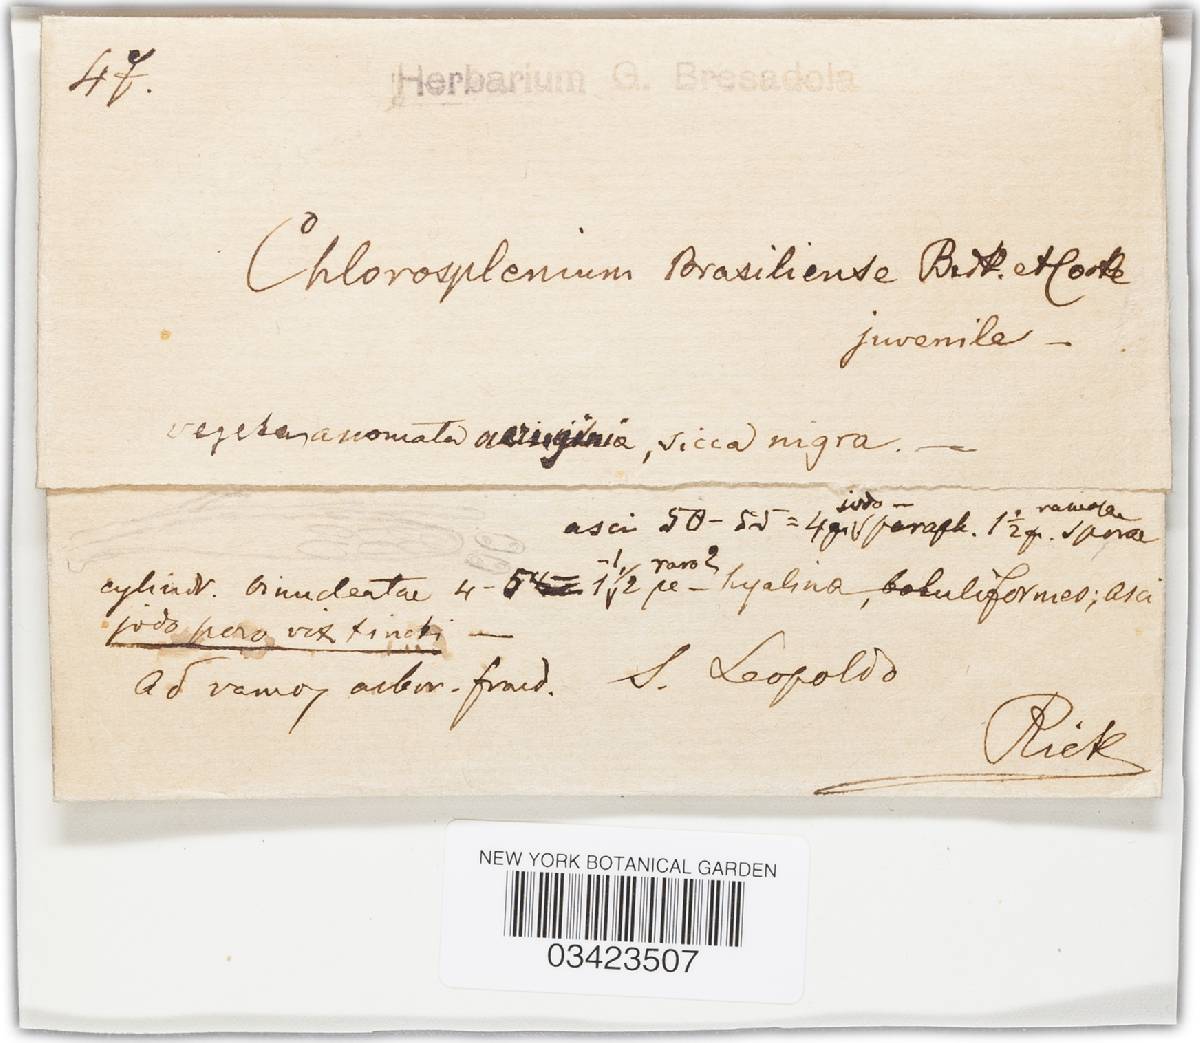 47.
Herbarium G. Bresadola
Chlorosplenium Brasiliense Berk. et Cooke
juvenile —
anomata aeruginia, sicca nigra. —
asci 50-55 = 4 paraph. 1½ sporae
cylindr. 4-5 1½ raro 2 — hyalinae, botuliformes; asci
jodo vix tincti —
Ad ramos arbor. frond. S. Leopoldo
Rick
NEW YORK BOTANICAL GARDEN
03423507